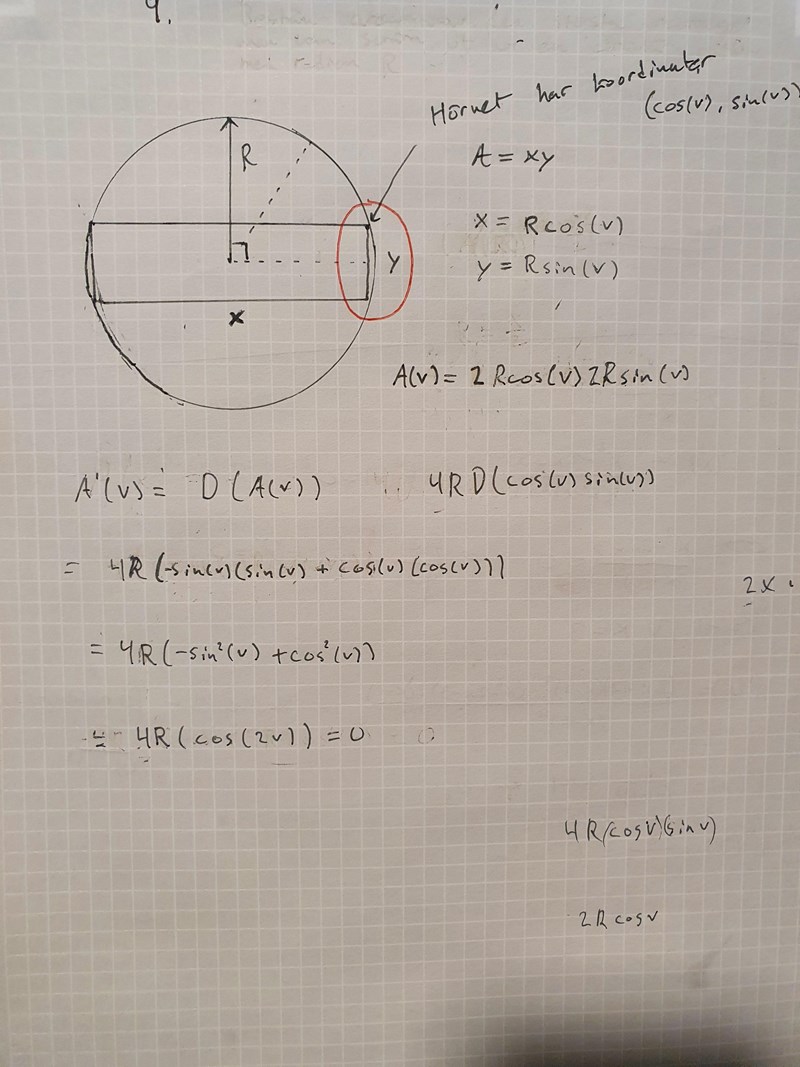 9.
Hörnet har koordinater
(cos(v), sin(v))
R
A = xy
x = Rcos(v)
y = Rsin(v)
y
x
A(v) = 2 Rcos(v) 2R sin(v)
A'(v) = D(A(v)) .. 4R D(cos(v) sin(v))
= 4R (-sin(v)(sin(v) + cos(v)(cos(v)))
2x .
= 4R(-sin²(v) + cos²(v))
= 4R(cos(2v)) = 0
4R(cosv)(sinv)
2R cosv